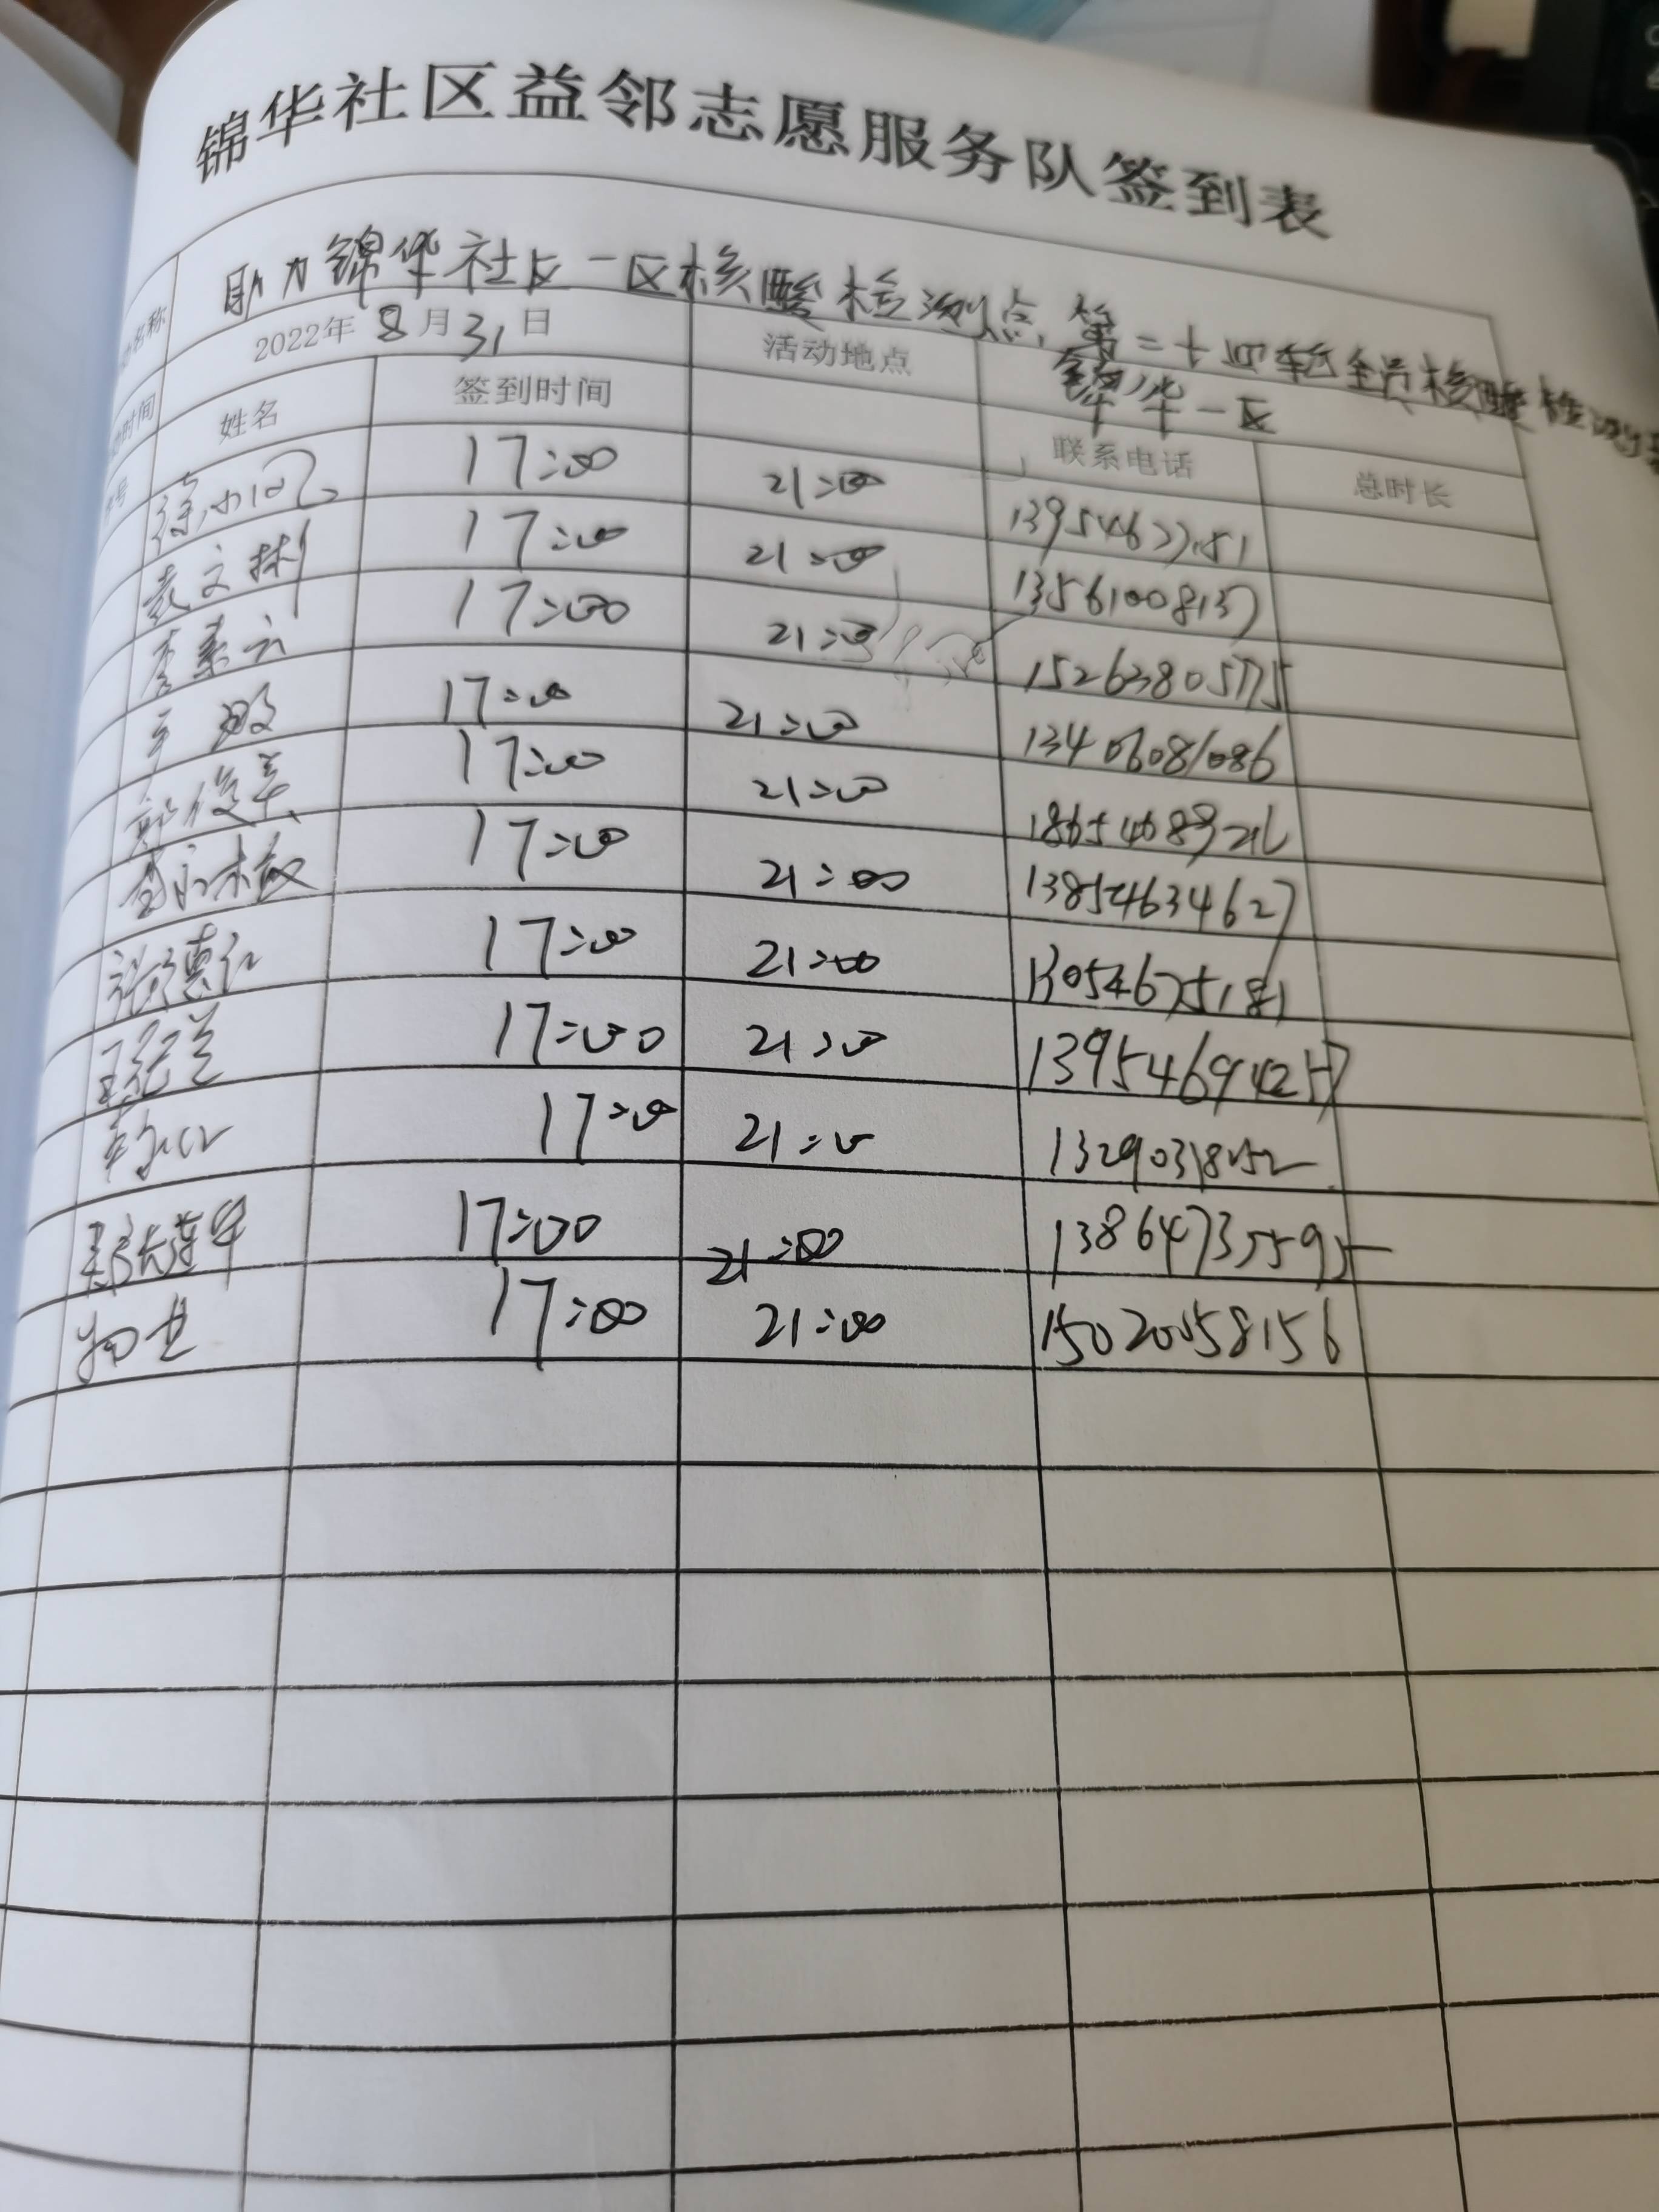 锦华社区益邻志愿服务队签到表
名称 助力锦华社区一区核酸检测点,第二十四轮全员核酸检测
时间 2022年8月31日 活动地点 锦华一区
号 姓名 签到时间 联系电话 总时长
17:00 21:00
袁文彬 17:00 21:00 13561008137
李素云 17:00 21:00 15263805775
17:00 21:00 13406081086
17:00 21:00
17:00 21:00 13854634627
张德仁 17:00 21:00
王纪兰 17:00 21:00 13954694257
17:00 21:00
17:00 21:00 13864735595
17:00 21:00 15020058156